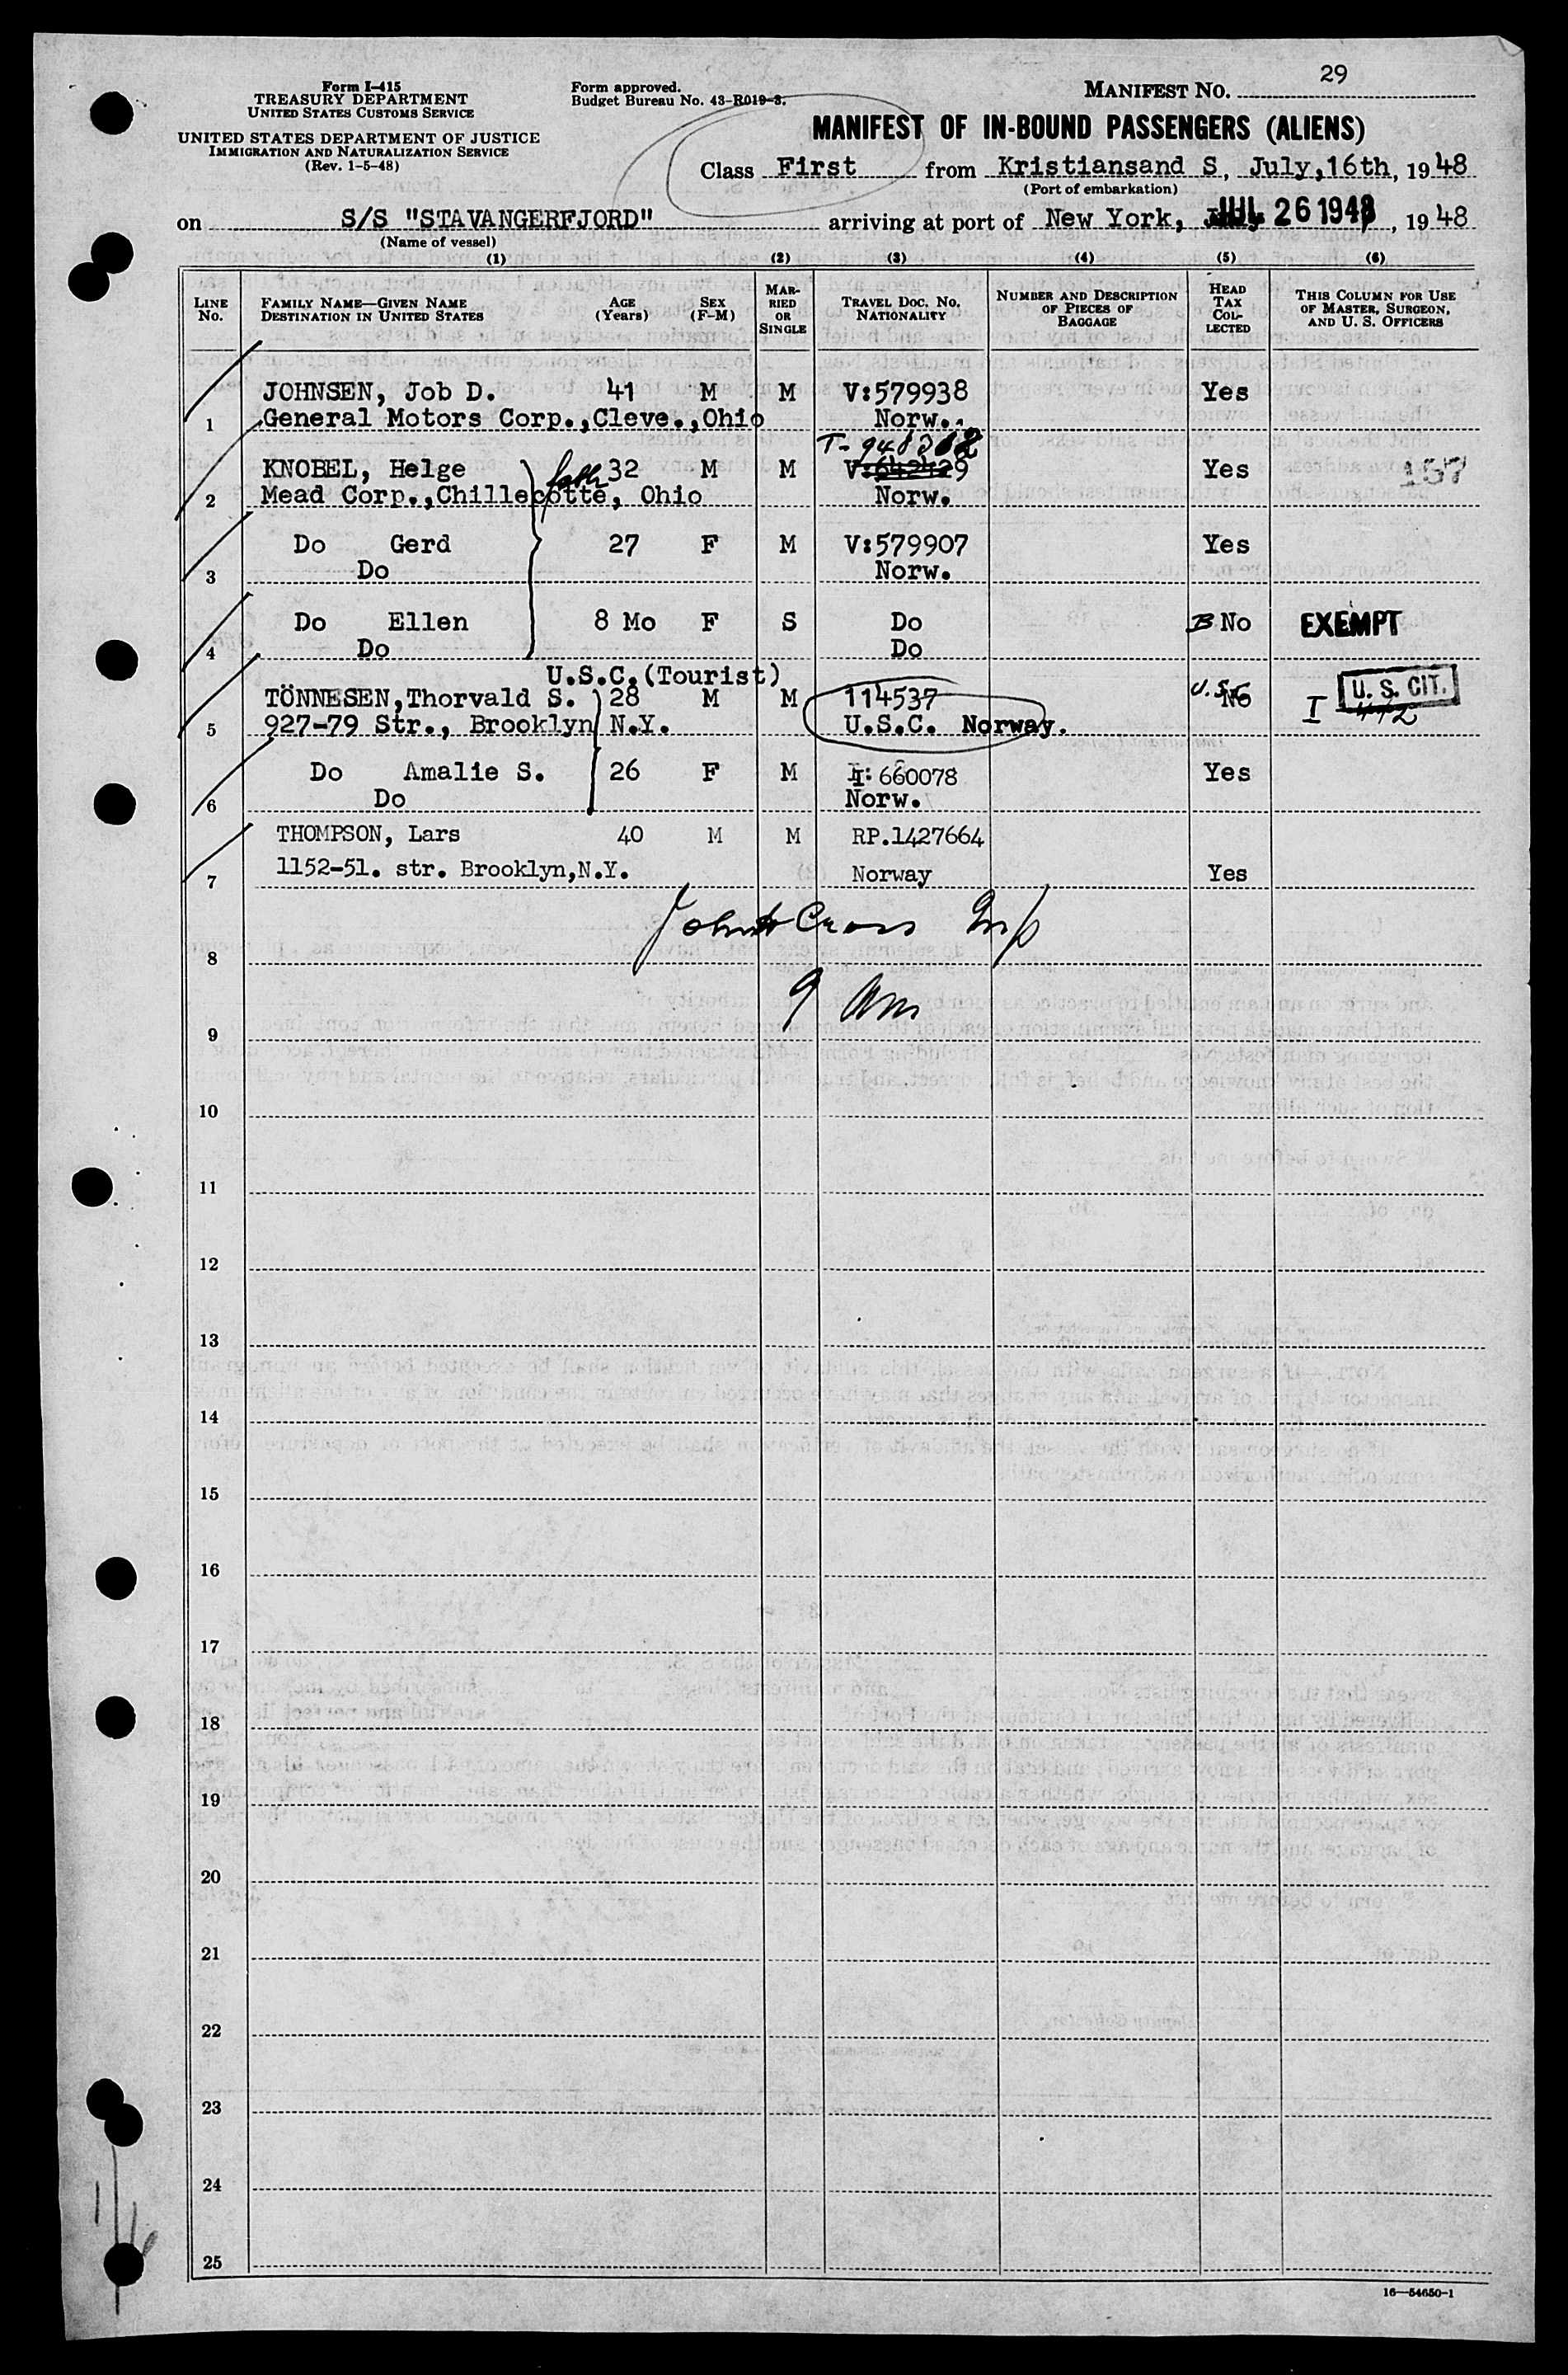 29
Form I-415
TREASURY DEPARTMENT
UNITED STATES CUSTOMS SERVICE
Form approved.
Budget Bureau No. 43-R019-3.
MANIFEST NO.
UNITED STATES DEPARTMENT OF JUSTICE
IMMIGRATION AND NATURALIZATION SERVICE
(Rev. 1-5-48)
MANIFEST OF IN-BOUND PASSENGERS (ALIENS)
Class First from Kristiansand S, July,16th, 1948
(Port of embarkation)
on S/S "STAVANGERFJORD" arriving at port of New York, JUL 26 1948, 1948
(Name of vessel)
(1) (2) (3) (4) (5) (6)
LINE No. FAMILY NAME—GIVEN NAME DESTINATION IN UNITED STATES AGE (Years) SEX (F-M) MARRIED OR SINGLE TRAVEL DOC. NO. NATIONALITY NUMBER AND DESCRIPTION OF PIECES OF BAGGAGE HEAD TAX COLLECTED THIS COLUMN FOR USE OF MASTER, SURGEON, AND U. S. OFFICERS
JOHNSEN, Job D. 41 M M V:579938 Yes
1 General Motors Corp.,Cleve.,Ohio Norw.
KNOBEL, Helge 32 M M Yes 157
2 Mead Corp.,Chillecotte, Ohio Norw.
Do Gerd 27 F M V:579907 Yes
3 Do Norw.
Do Ellen 8 Mo F S Do B No EXEMPT
4 Do Do
U.S.C.(Tourist)
TÖNNESEN,Thorvald S. 28 M M 114537 U.S.C. No U. S. CIT.
5 927-79 Str., Brooklyn N.Y. U.S.C. Norway. I
Do Amalie S. 26 F M I: 660078 Yes
6 Do Norw.
THOMPSON, Lars 40 M M RP.1427664
7 1152-51. str. Brooklyn,N.Y. Norway Yes
8 Cross Insp
9 9 Am
10
11
12
13
14
15
16
17
18
19
20
21
22
23
24
25
16—54650-1